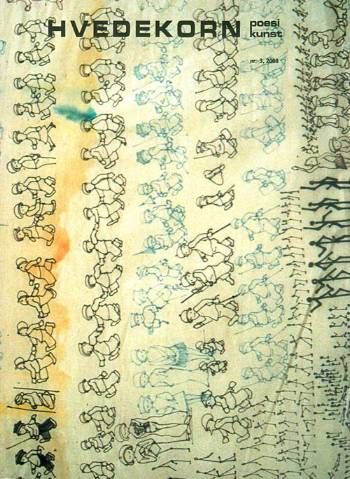 HVEDEKORN poesi
kunst
nr. 3, 2008